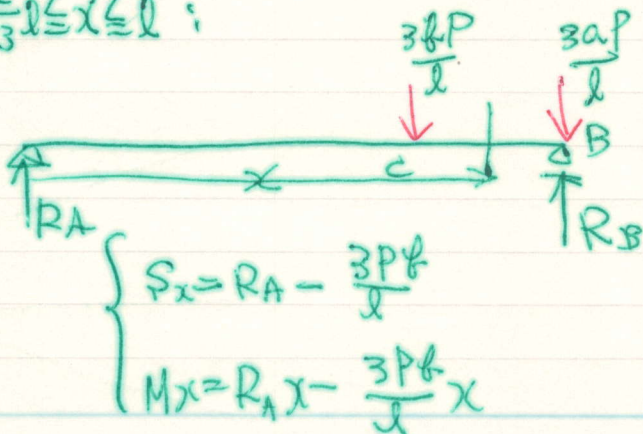 2/3 l ≦ x ≦ l :
3bP/l 3aP/l
B
x C
RA RB
Sx = RA - 3Pb/l
Mx = RA x - 3Pb/l x